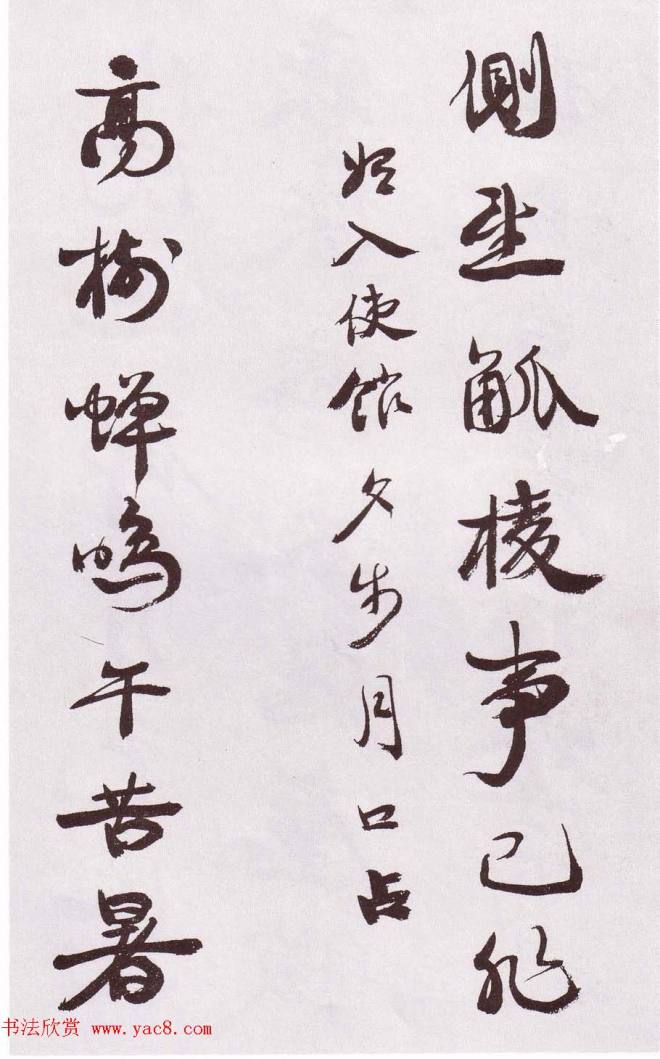 侧坐觚棱事已非
始入使馆夕步月口占
高树蝉鸣午苦暑
书法欣赏 www.yac8.com